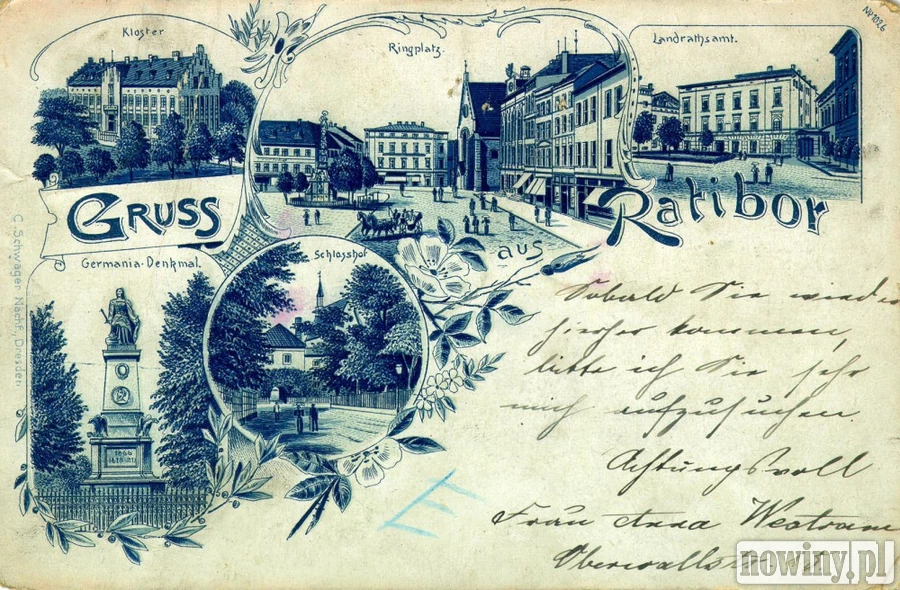 Kloster
Ringplatz.
Landrathsamt.
No 1026
GRUSS
aus
Ratibor
Germania-Denkmal.
Schlosshof
C. Schwager Nachf., Dresden
1866
1870-71
Sobald Sie wieder
hierher kommen,
bitte ich Sie sehr
mich aufzusuchen.
Achtungsvoll
Frau
Oberwallstr.
E
nowiny.pl